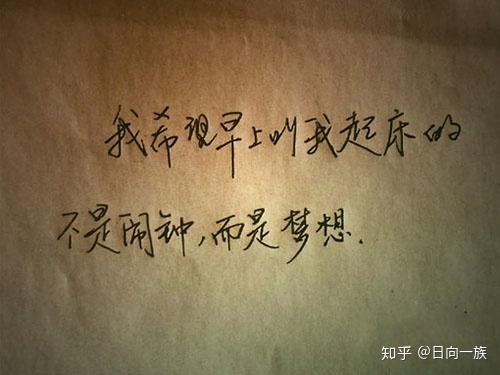 我希现早上叫我起床的
不是闹钟,而是梦想.
知乎 @日向一族